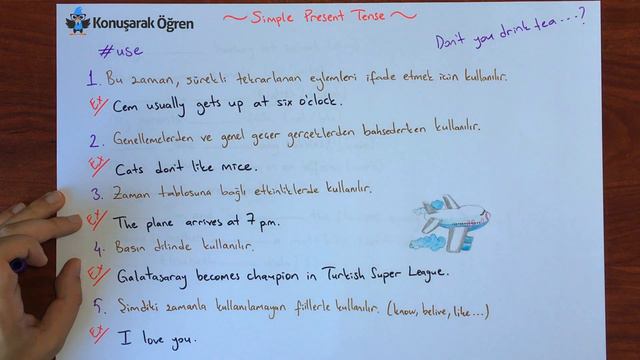 Konuşarak Öğren
~ Simple Present Tense ~
Don't you drink tea...?
#use
1. Bu zaman, sürekli tekrarlanan eylemleri ifade etmek için kullanılır.
Ex/ Cem usually gets up at six o'clock.
2. Genellemelerden ve genel geçer gerçeklerden bahsederken kullanılır.
Ex/ Cats don't like mice.
3. Zaman tablosuna bağlı etkinliklerde kullanılır.
Ex/ The plane arrives at 7 p.m.
4. Basın dilinde kullanılır.
Ex/ Galatasaray becomes champion in Turkish Super League.
5. Şimdiki zamanla kullanılamayan fiillerle kullanılır. (know, belive, like...)
Ex/ I love you.